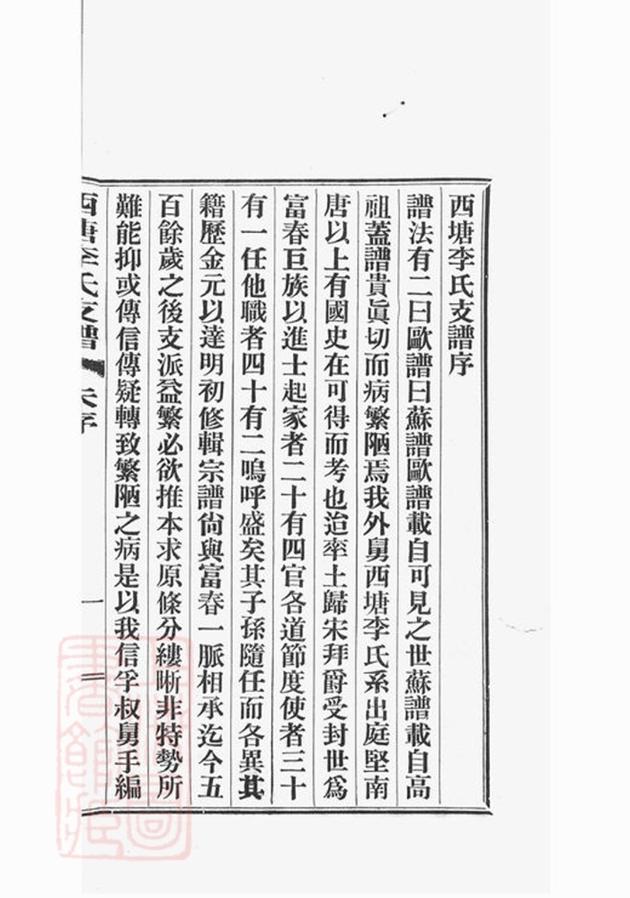 西塘李氏支譜序
譜法有二曰歐譜曰蘇譜歐譜載自可見之世蘇譜載自高
祖蓋譜貴眞切而病繁陋焉我外舅西塘李氏系出庭堅南
唐以上有國史在可得而考也迨率土歸宋拜爵受封世爲
富春巨族以進士起家者二十有四官各道節度使者三十
有一任他職者四十有二嗚呼盛矣其子孫隨任而各異其
籍歷金元以達明初修輯宗譜尙與富春一脈相承迄今五
百餘歲之後支派益繁必欲推本求原條分縷晰非特勢所
難能抑或傳信傳疑轉致繁陋之病是以我信孚叔舅手編
西塘李氏支譜 序 一